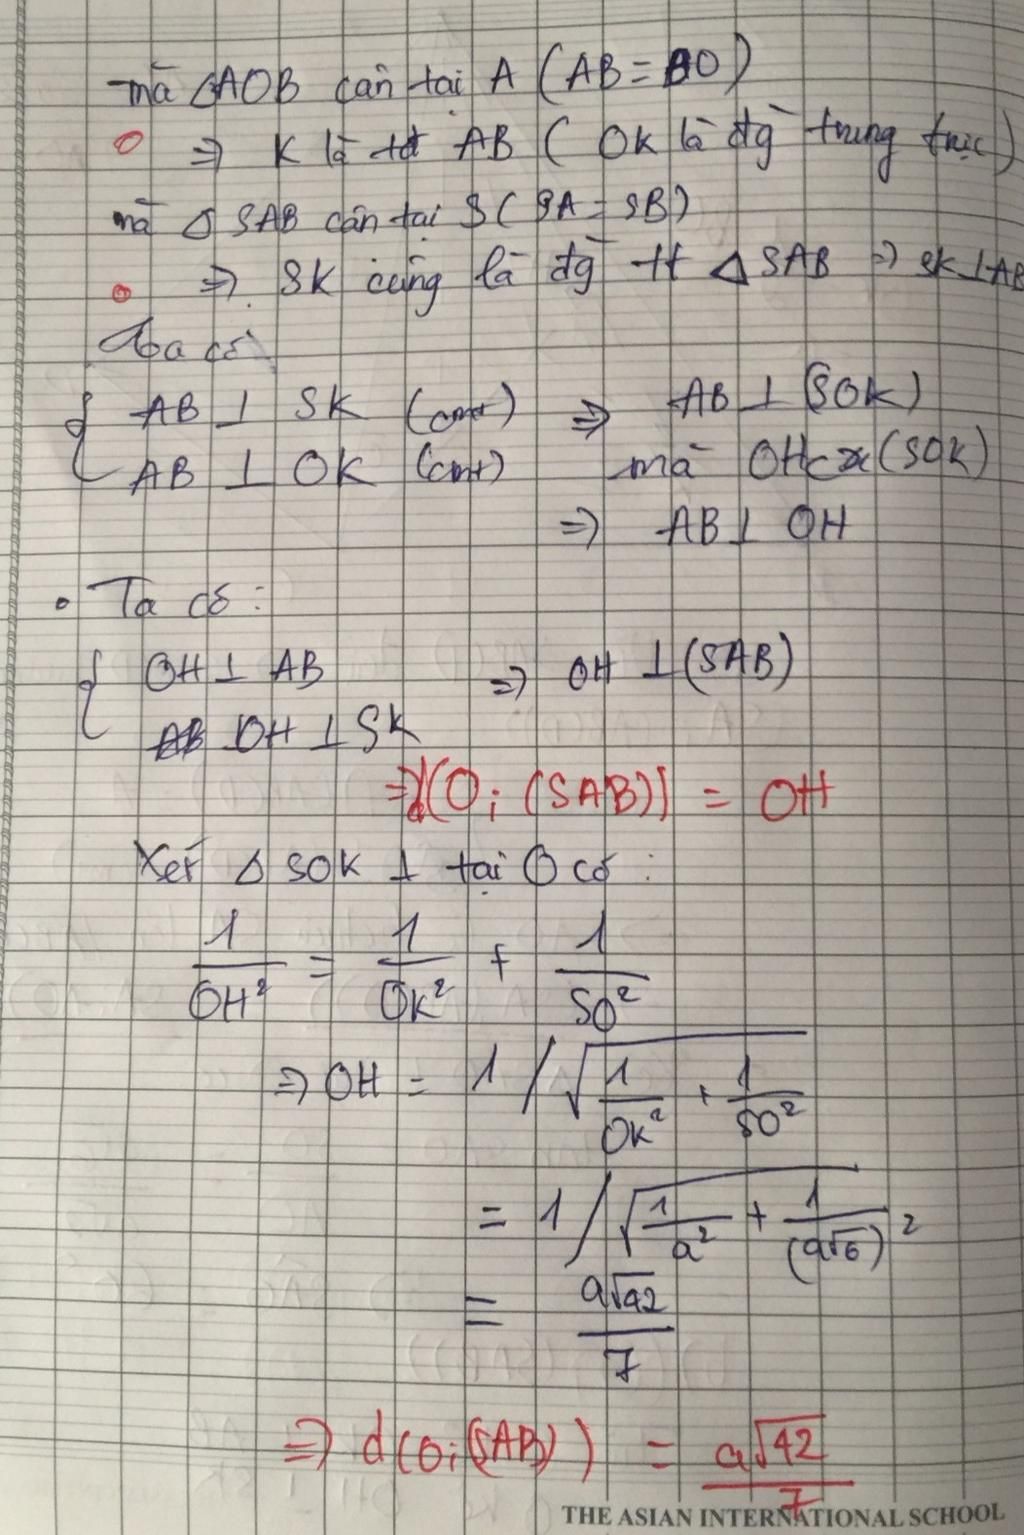 mà ΔAOB cân tại A (AB = AO)
⇒ K là tđ AB (OK là đg trung trực)
mà Δ SAB cân tại S (SA = SB)
⇒ SK cũng là đg tt Δ SAB ⇒ SK ⊥ AB
Ta có
{ AB ⊥ SK (cmt) ⇒ AB ⊥ (SOK)
AB ⊥ OK (cmt) mà OH ⊂ (SOK)
⇒ AB ⊥ OH
• Ta có :
{ OH ⊥ AB ⇒ OH ⊥ (SAB)
OH ⊥ SK
⇒ d(O; (SAB)) = OH
Xét Δ SOK ⊥ tại O có :
1/OH² = 1/OK² + 1/SO²
⇒ OH = 1 / √(1/OK² + 1/SO²)
= 1 / √(1/a² + 1/(a√6)²)
= a√42/7
⇒ d(O; (SAB)) = a√42/7
THE ASIAN INTERNATIONAL SCHOOL